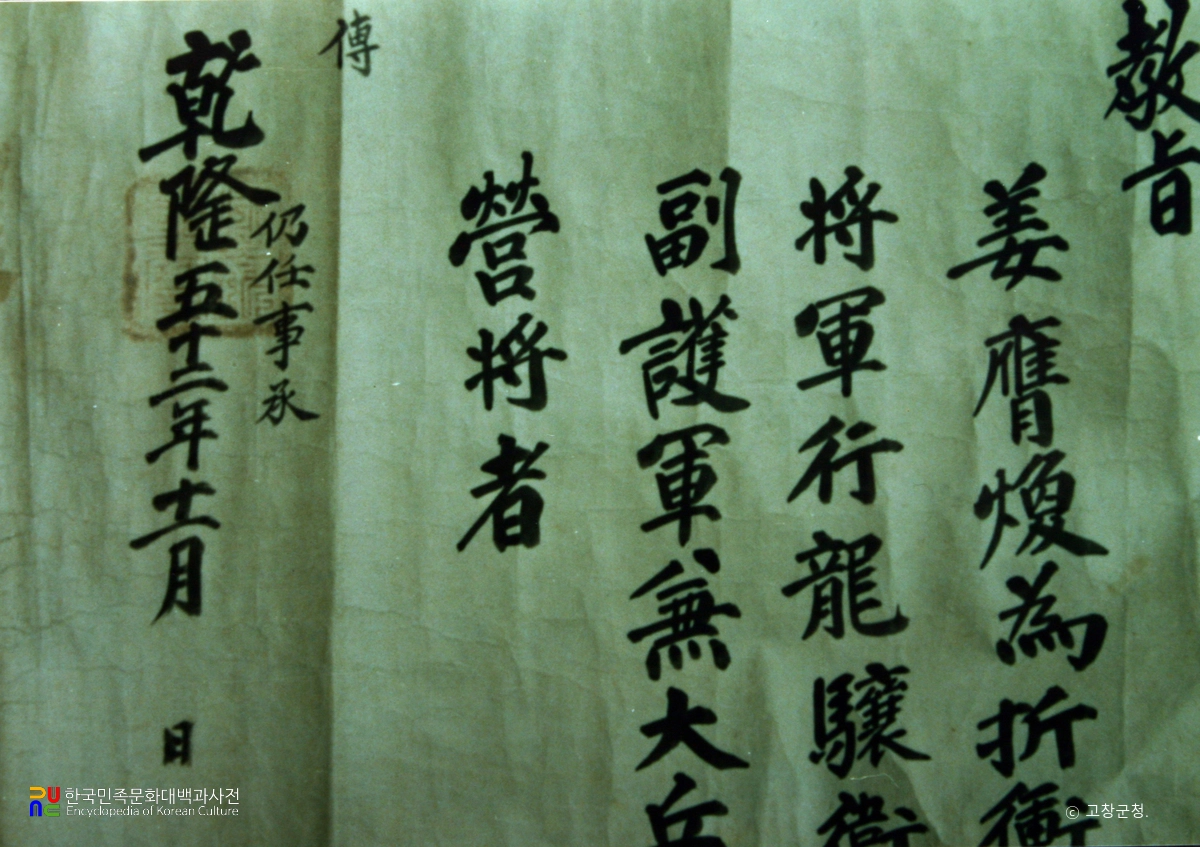 教旨
姜膺煥為折衝
将軍行龍驤衛
副護軍無大丘
營将者
乾隆五十二年十二月 日
仍任事承
傳
한국민족문화대백과사전
Encyclopedia of Korean Culture
© 고창군청.